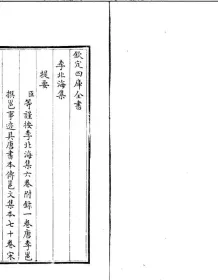 欽定四庫全書
李北海集
提要
臣等謹按李北海集六卷附錄一卷唐李邕
撰邕事迹具唐書本傳邕文集本七十卷宋